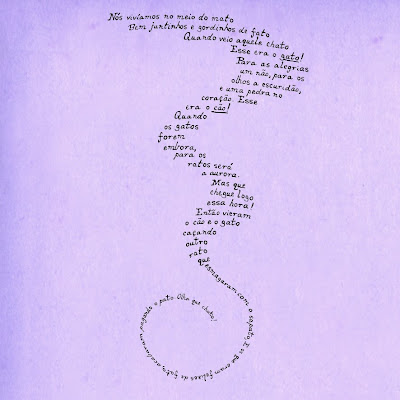 Nós vivíamos no meio do mato
Bem juntinhos e gordinhos de fato
Quando veio aquele chato
Esse era o gato!
Para as alegrias
um não, para os
olhos a escuridão,
e uma pedra no
coração. Esse
era o cão!
Quando
os gatos
forem
embora,
para os
ratos será
a aurora.
Mas que
chegue logo
essa hora!
Então vieram
o cão e o gato
caçando
outro
rato
que esmagaram com o sapato. E os que eram felizes de fato, acabaram pagando o pato. Olha que chato!